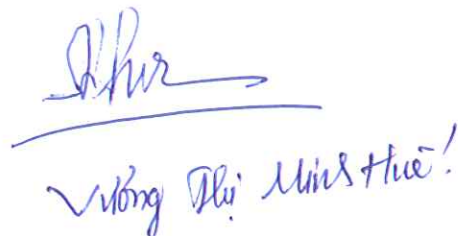 Vương Thị Minh Huê!